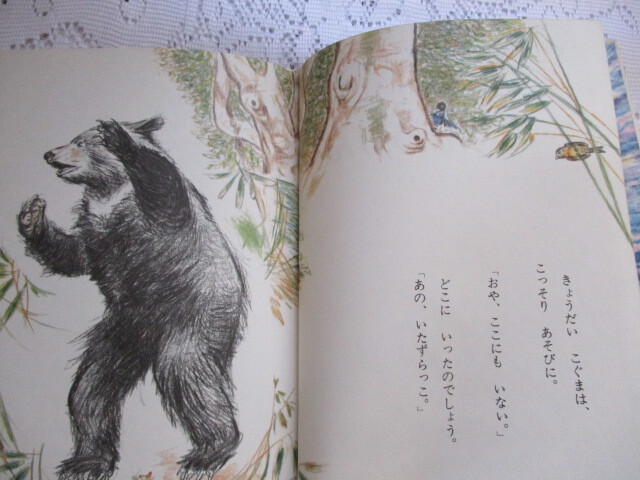 きょうだい こぐまは、
こっそり あそびに。
「おや、ここにも いない。」
どこに いったのでしょう。
「あの、いたずらっこ。」